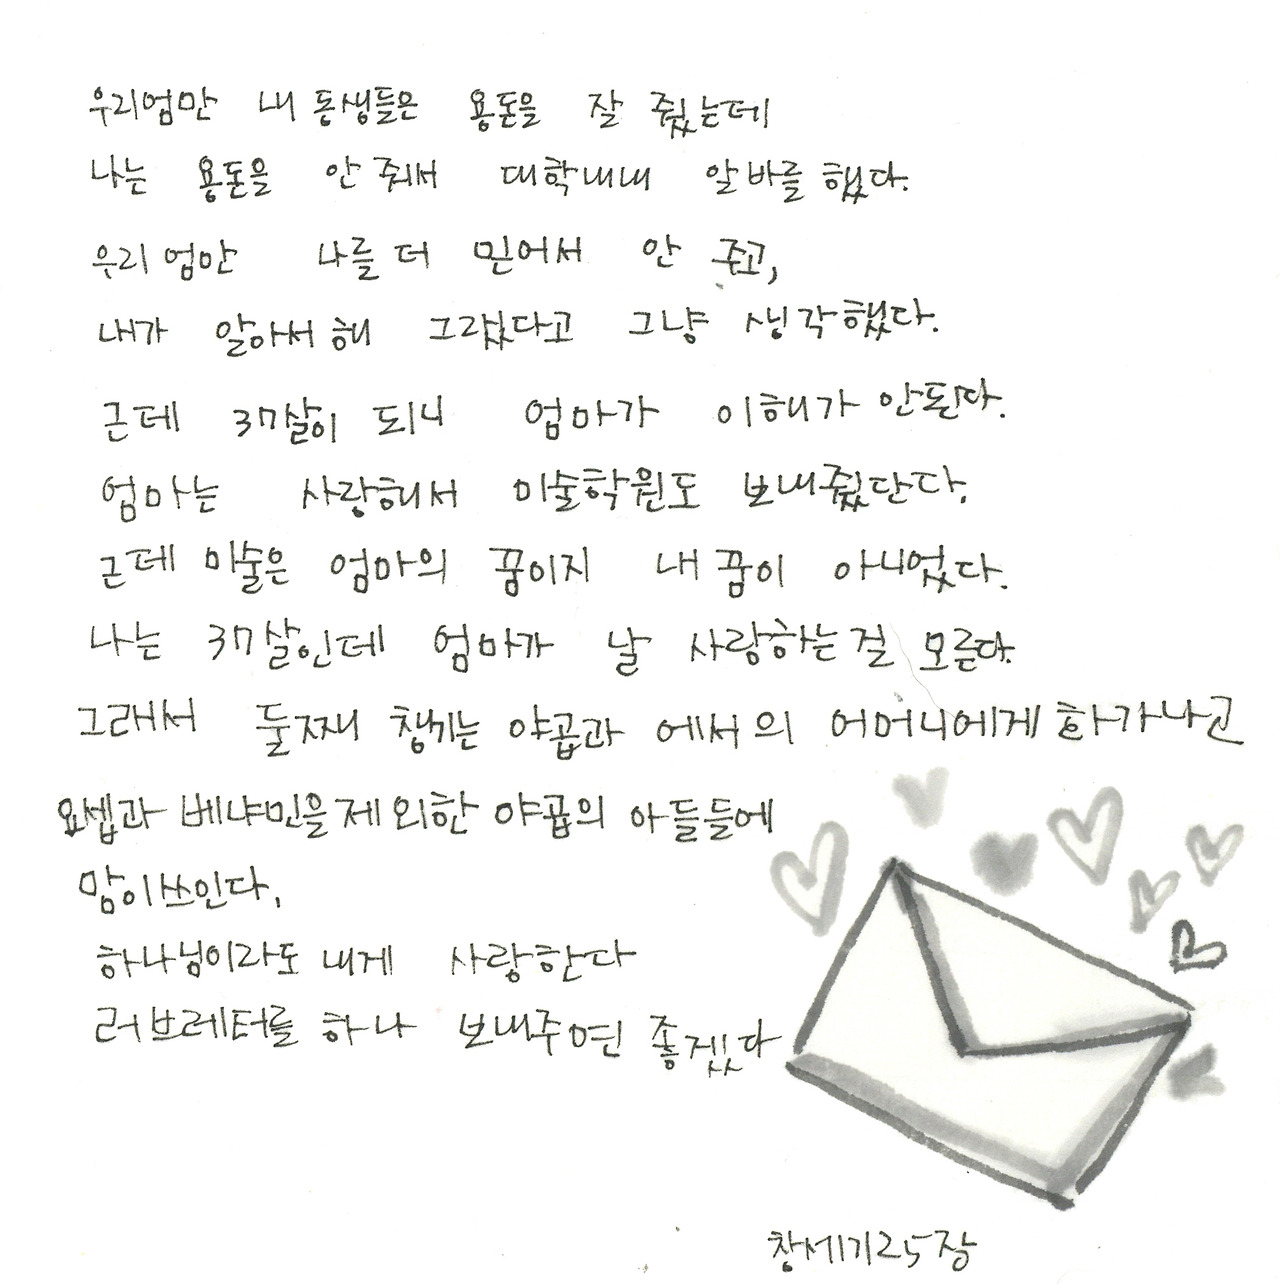 우리엄만 내 동생들은 용돈을 잘 줬는데
나는 용돈을 안 줘서 대학내내 알바를 했다.
우리 엄만 나를 더 믿어서 안 주고,
내가 알아서 해 그랬다고 그냥 생각했다.
근데 37살이 되니 엄마가 이해가 안된다.
엄마는 사랑해서 미술학원도 보내줬단다.
근데 미술은 엄마의 꿈이지 내 꿈이 아니었다.
나는 37살인데 엄마가 날 사랑하는 걸 모른다.
그래서 둘째 챙기는 야곱과 에서의 어머니에게 화가나고
요셉과 베냐민을 제외한 야곱의 아들들에
맘이쓰인다.
하나님이라도 내게 사랑한다
러브레터를 하나 보내주면 좋겠다
창세기25장